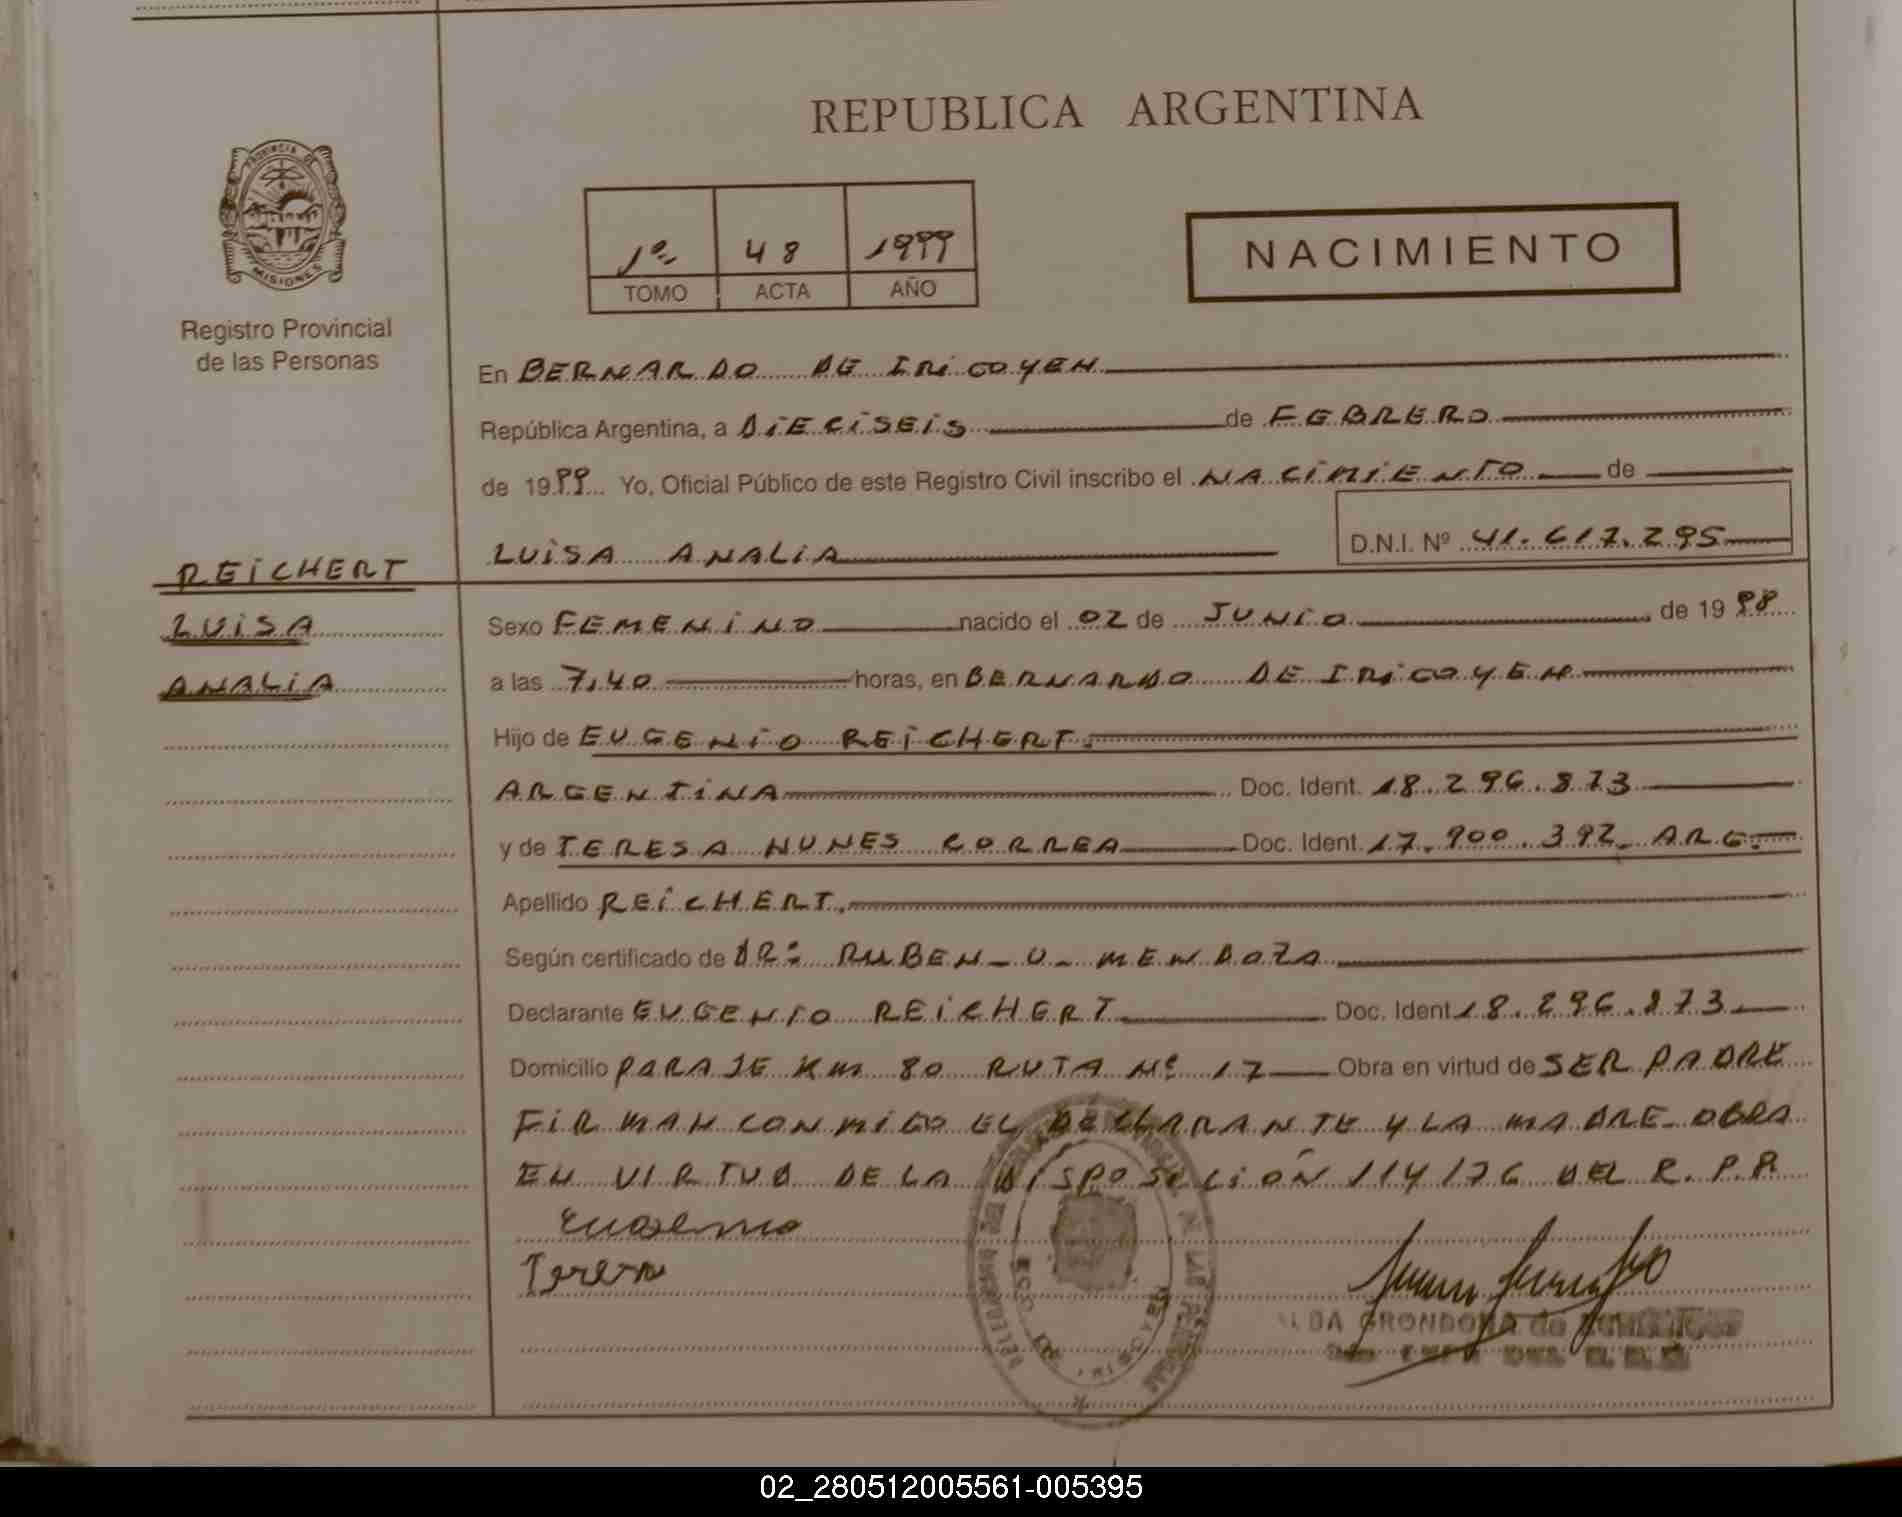 REPUBLICA ARGENTINA
PROVINCIA DE
MISIONES
Registro Provincial
de las Personas
1º 48 1999
TOMO ACTA AÑO
NACIMIENTO
En BERNARDO DE IRIGOYEN
República Argentina, a DIECISEIS de FEBRERO
de 1999 Yo, Oficial Público de este Registro Civil inscribo el NACIMIENTO de
LUISA ANALIA D.N.I. Nº 41.617.295
REICHERT
LUISA
ANALIA
Sexo FEMENINO nacido el 02 de JUNIO de 1998
a las 7,40 horas, en BERNARDO DE IRIGOYEN
Hijo de EUGENIO REICHERT.
ARGENTINA Doc. Ident. 18.296.873
y de TERESA NUNES CORREA Doc. Ident. 17.900.392- ARG.
Apellido REICHERT.
Según certificado de DR: RUBEN-O-MENDOZA
Declarante EUGENIO REICHERT Doc. Ident 18.296.873
Domicilio PARAJE KM 80 RUTA Nº 17 Obra en virtud de SER PADRE
FIRMAN CONMIGO EL DECLARANTE Y LA MADRE- OBRA
EN VIRTUD DE LA DISPOSICIÓN 114/76 DEL R.P.P.
Teresa
GRONDONA de
02_280512005561-005395